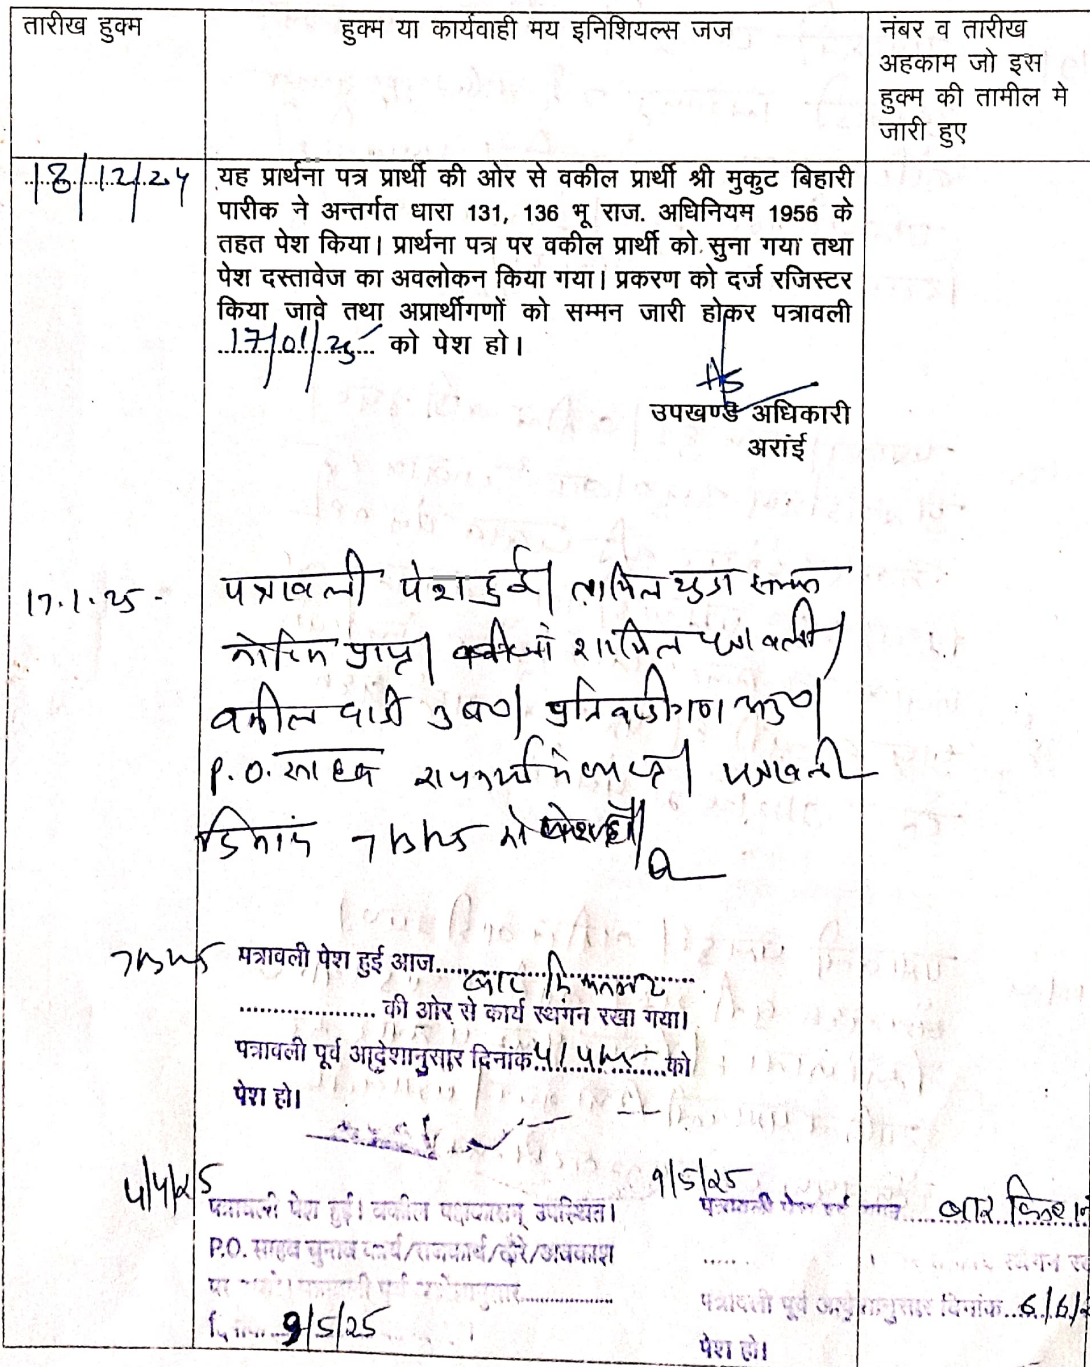 तारीख हुक्म
हुक्म या कार्यवाही मय इनिशियल्स जज
नंबर व तारीख
अहकाम जो इस
हुक्म की तामील मे
जारी हुए
18/12/24
यह प्रार्थना पत्र प्रार्थी की ओर से वकील प्रार्थी श्री मुकुट बिहारी
पारीक ने अन्तर्गत धारा 131, 136 भू राज. अधिनियम 1956 के
तहत पेश किया। प्रार्थना पत्र पर वकील प्रार्थी को सुना गया तथा
पेश दस्तावेज का अवलोकन किया गया। प्रकरण को दर्ज रजिस्टर
किया जावे तथा अप्रार्थीगणों को सम्मन जारी होकर पत्रावली
17/01/25 को पेश हो।
उपखण्ड अधिकारी
अरांई
17.1.25-
पत्रावली पेश हुई। तामिल शुदा सम्मन
प्राप्त। शामिल पत्रावली।
वकील प्रार्थी उप०। प्रतिवादीगण अनु०।
P.O. साहब राजकार्य में व्यस्त। पत्रावली
दिनांक 7/3/25 को पेश हो।
7/3/25
पत्रावली पेश हुई आज बार
की ओर से कार्य स्थगन रखा गया।
पत्रावली पूर्व आदेशानुसार दिनांक 4/4/25 को
पेश हो।
4/4/25
पत्रावली पेश हुई। वकील उपस्थित।
P.O. साहब चुनाव कार्य/राजकार्य/दौरे/अवकाश
पर पत्रावली पूर्व आदेशानुसार
9/5/25
9/5/25
पत्रावली पेश हुई बार
स्थगन
पत्रावली पूर्व आदेशानुसार दिनांक 6/6/2
पेश हो।